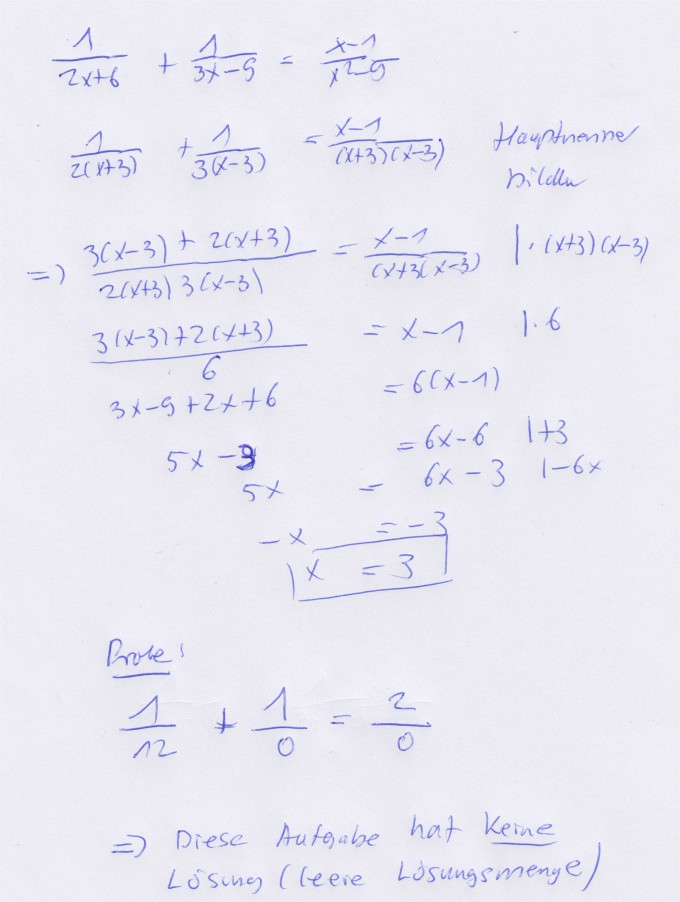 1/(2x+6) + 1/(3x-9) = (x-1)/(x²-9)
1/(2(x+3)) + 1/(3(x-3)) = (x-1)/((x+3)(x-3)) Hauptnenner
bilden
=> (3(x-3) + 2(x+3))/(2(x+3) 3(x-3)) = (x-1)/((x+3)(x-3)) | · (x+3)(x-3)
(3(x-3)+2(x+3))/6 = x-1 | · 6
3x-9+2x+6 = 6(x-1)
5x -3 = 6x-6 | +3
5x = 6x-3 | -6x
-x = -3
x = 3
Probe:
1/12 + 1/0 = 2/0
=> Diese Aufgabe hat keine
Lösung (leere Lösungsmenge)